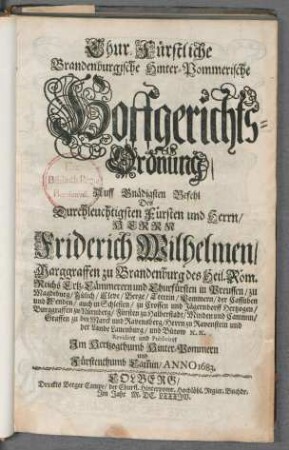 Chur-Fürstliche
Brandenburgische Hinter-Pommerische
Hoffgerichts-
Ordnung/
Auff Gnädigsten Befehl
Des
Durchleuchtigsten Fürsten und Herrn/
HERRN
Friderich Wilhelmen/
Marggraffen zu Brandenburg des Heil. Rom.
Reichs Ertz-Cämmerern und Churfürsten in Preussen/ zu
Magdeburg/ Jülich/ Cleve/ Berge/ Stettin/ Pommern/ der Cassuben
und Wenden/ auch in Schlesien/ zu Crossen und Jägerndorff Hertzogen/
Burggraffen zu Nürnberg/ Fürsten zu Halberstadt/ Minden und Cammin/
Graffen zu der Marck und Ravensberg/ Herrn zu Ravenstein und
der Lande Lauenburg/ und Bütow ꝛc. ꝛc.
Revidiret und Publiciret
Im Hertzogthumb Hinter-Pommern
und
Fürstenthumb Camin/ ANNO 1683.
COLBERG/
Druckts Berger Campe/ der Churfl. Hinterpomr. Hochlöbl. Regier. Buchdr.
Im Jahr M. DC.